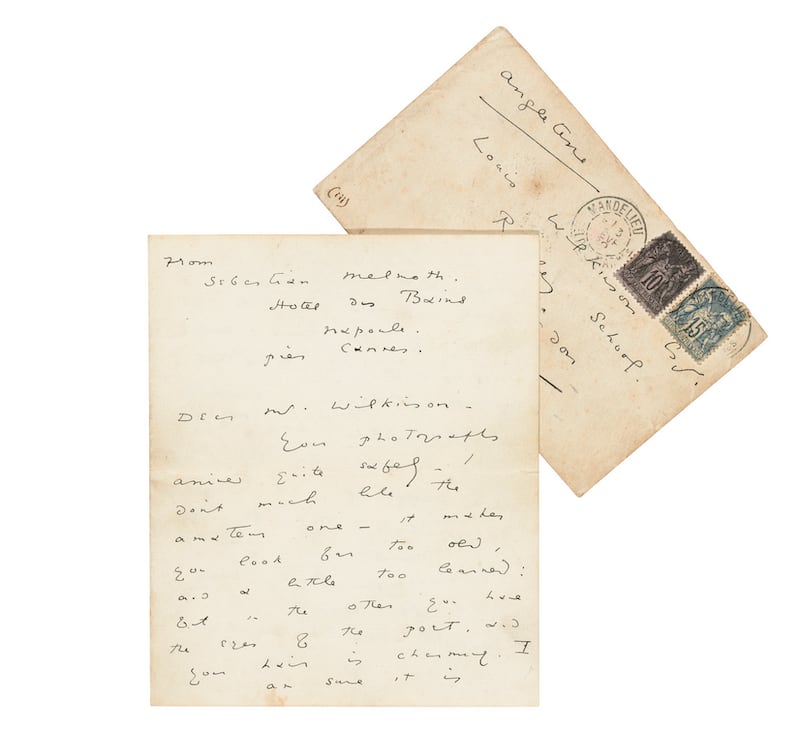 From
Sebastian Melmoth.
Hotel des Bains
Napoule.
près Cannes.
Dear Mr. Wilkinson –
Your photographs
arrived quite safely – I
don't much like the
amateur one – it makes
you look far too old,
and a little too learned:
but in the other you have
the eyes of the poet, and
your hair is charming. I
am sure it is
Angleterre
Louis Wilkinson
School.
(iii)
MANDELIEU
10
15